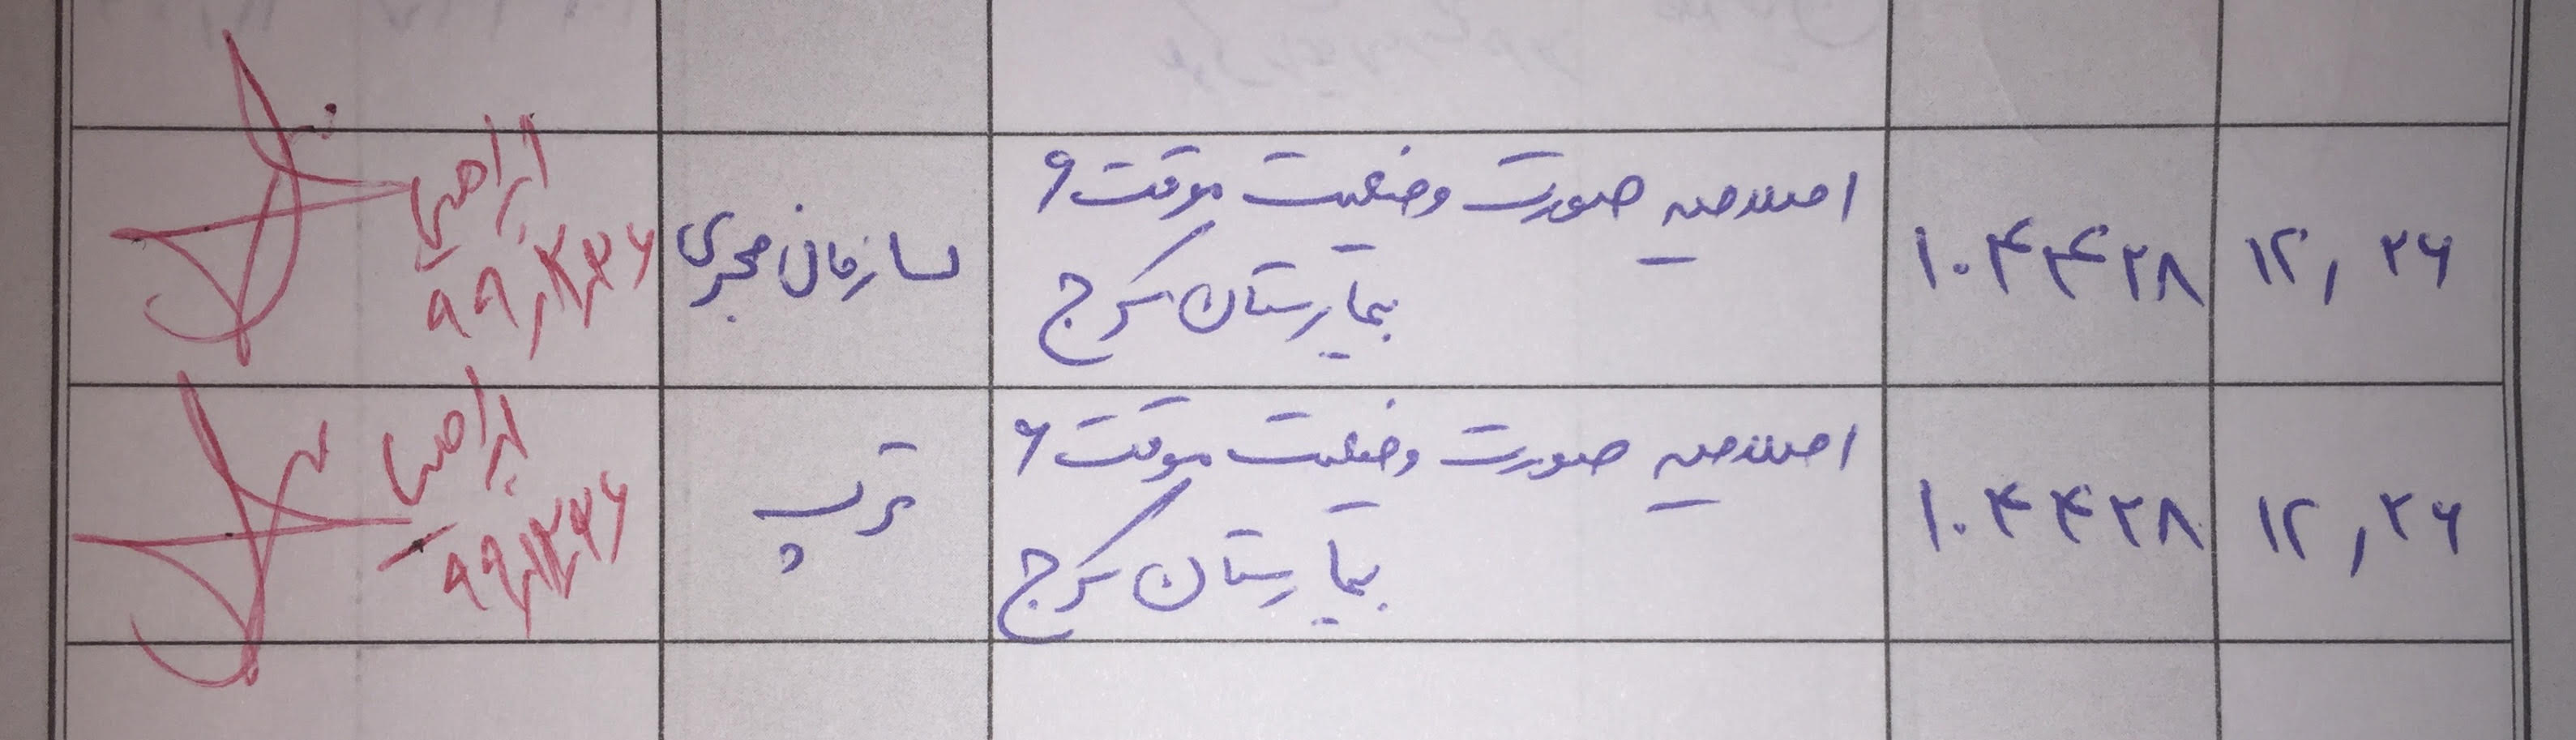 ۱۲٫۲۶
۱۰۴۴۲۸
اصلاحیه صورت وضعیت موقت ۶
بیمارستان کرج
سازمان مجری
ابراهیمی
۱۲٫۲۶
۱۰۴۴۲۸
اصلاحیه صورت وضعیت موقت ۶
بیمارستان کرج
ترب
ابراهیمی